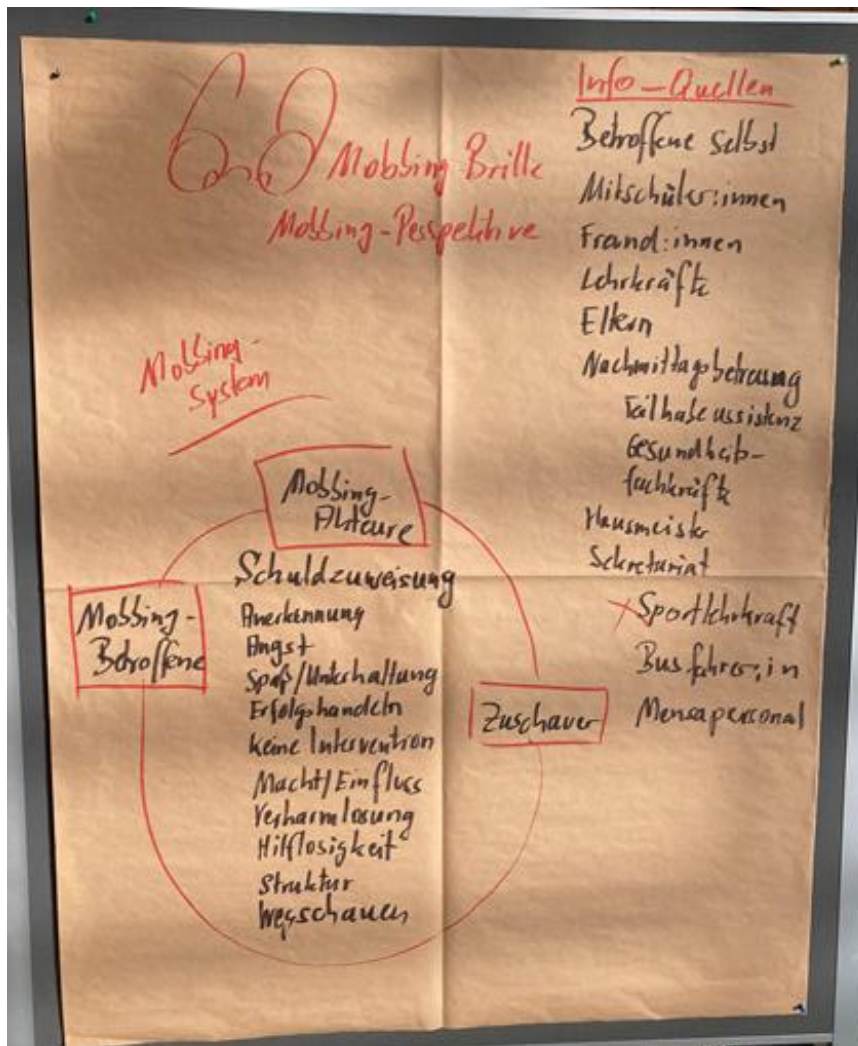 Mobbing Brille
Mobbing-Perspektive
Mobbing-
System
Mobbing-
Akteure
Mobbing-
Betroffene
Zuschauer
Schuldzuweisung
Anerkennung
Angst
Spaß/Unterhaltung
Erfolgshandeln
keine Intervention
Macht/Einfluss
Verharmlosung
Hilflosigkeit
Struktur
Wegschauen
Info-Quellen
Betroffene selbst
Mitschüler:innen
Freund:innen
Lehrkräfte
Eltern
Nachmittagsbetreuung
Teilhabeassistenz
Gesundheits-
fachkräfte
Hausmeister
Sekretariat
Sportlehrkraft
Busfahrer:in
Mensapersonal